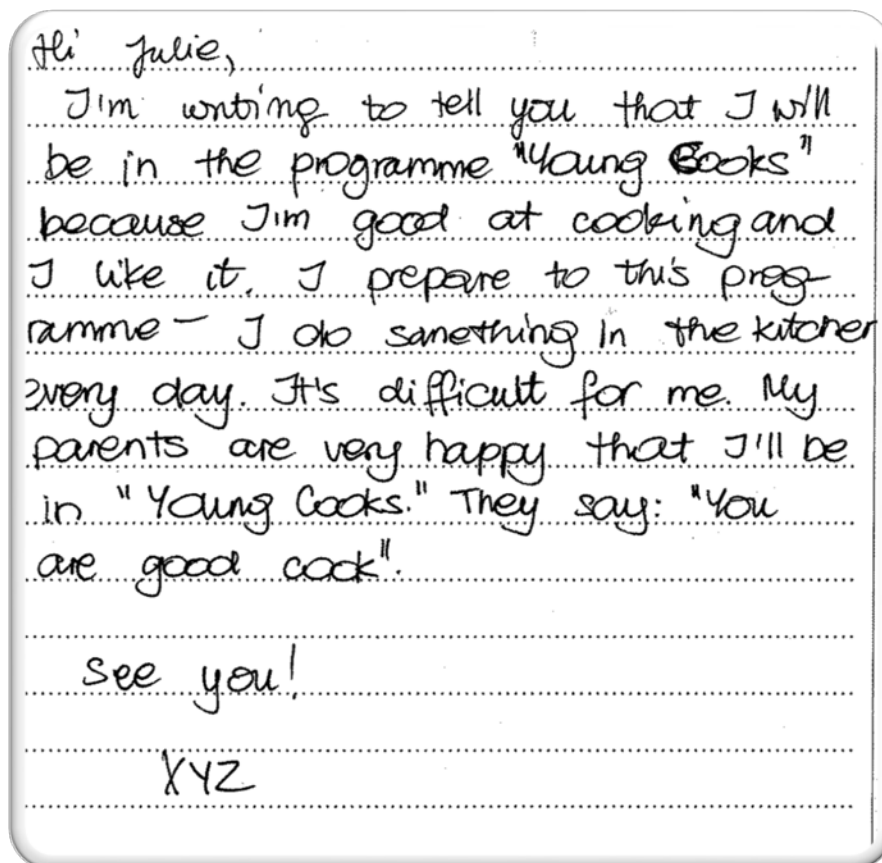 Hi Julie,
I'm writing to tell you that I will
be in the programme "Young Cooks"
because I'm good at cooking and
I like it. I prepare to this prog-
ramme – I do something in the kitchen
every day. It's difficult for me. My
parents are very happy that I'll be
in "Young Cooks." They say: "You
are good cook".
See you!
XYZ